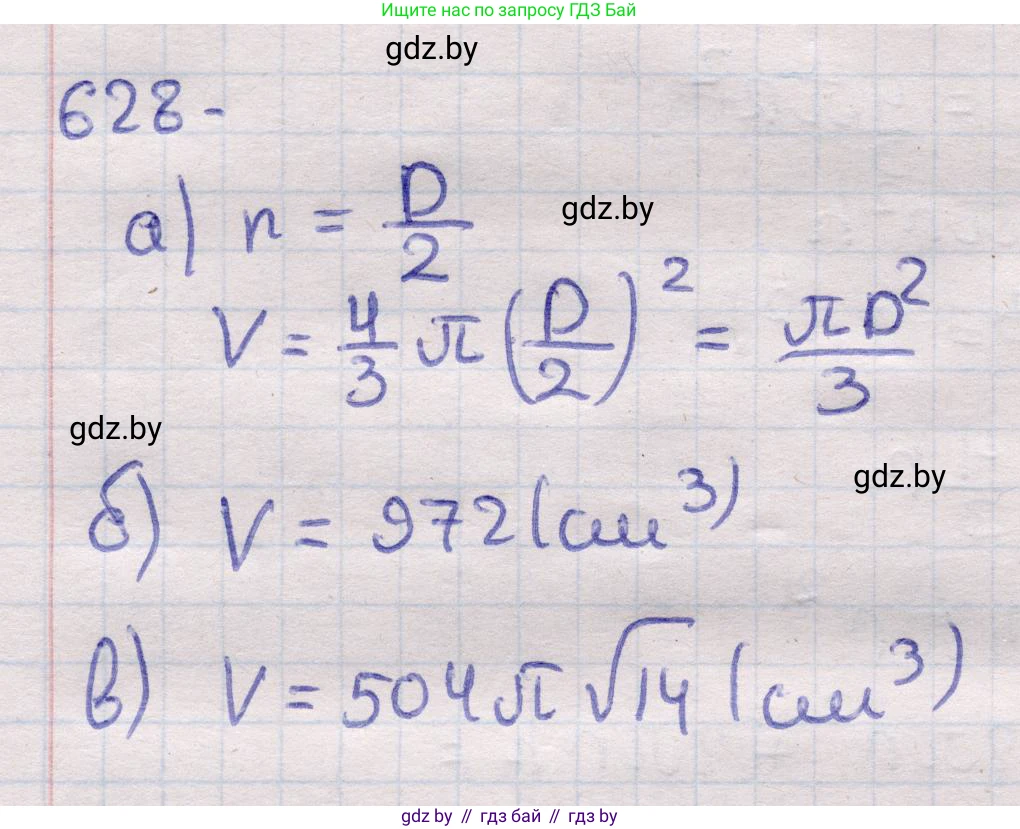 Ищите нас по запросу ГДЗ Бай
gdz.by
628-
а) r = D/2
gdz.by
V = 4/3 π (D/2)² = πD²/3
gdz.by
gdz.by
б) V = 972 (см³)
в) V = 504π√14 (см³)
gdz.by // гдз бай // gdz.by